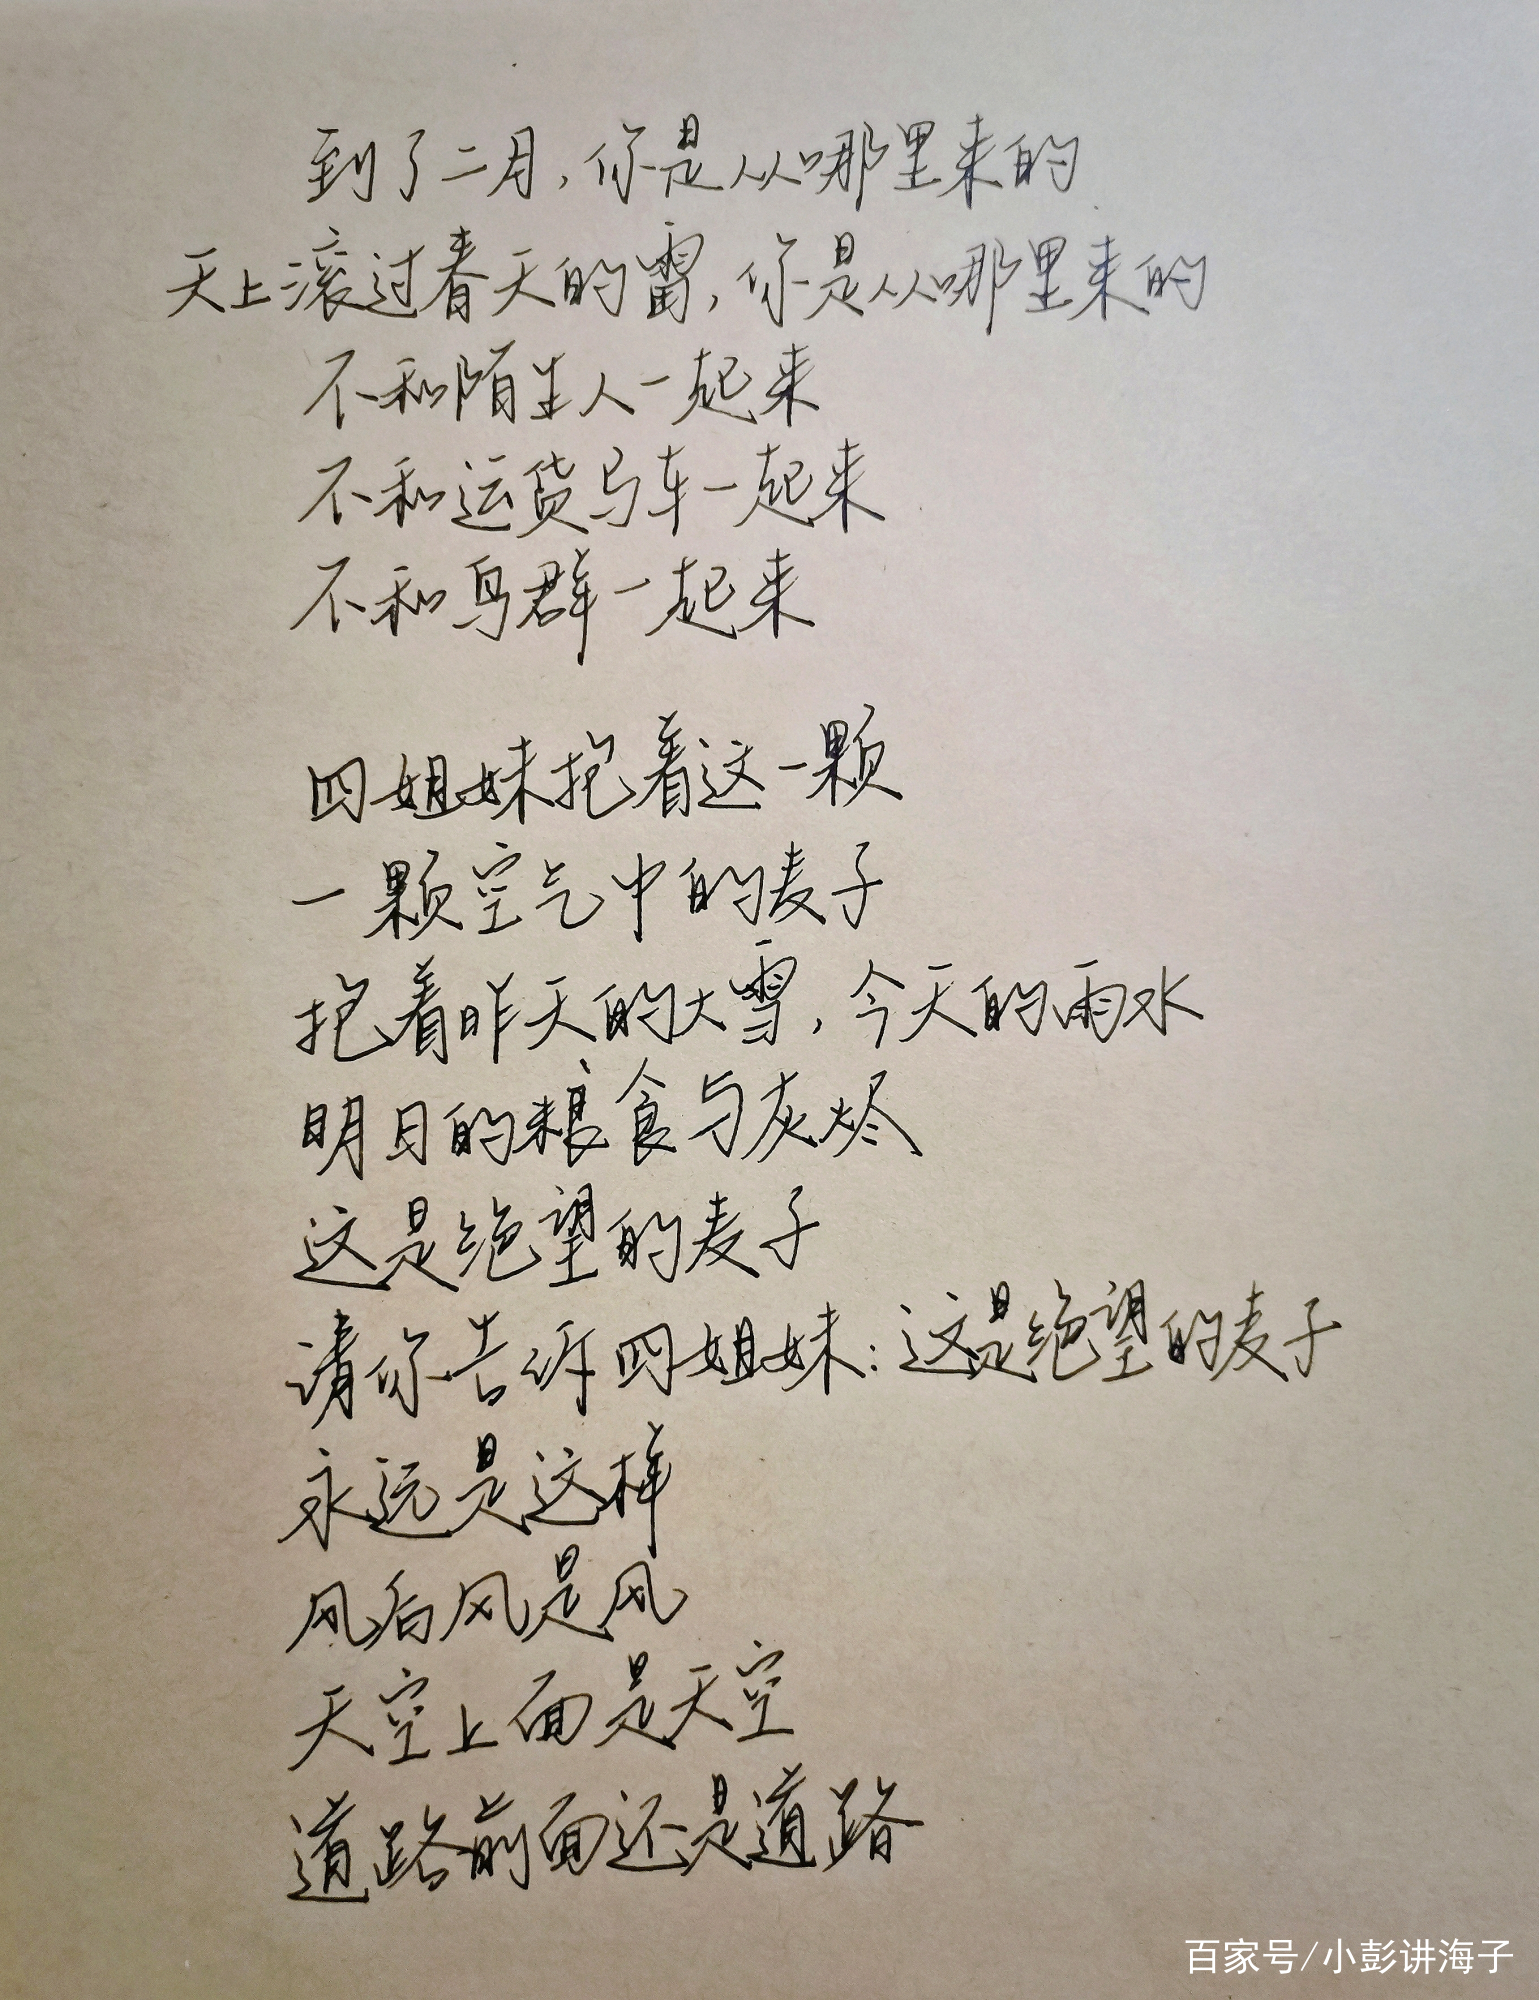 到了二月,你是从哪里来的
天上滚过春天的雷,你是从哪里来的
不和陌生人一起来
不和运货马车一起来
不和鸟群一起来
四姐妹抱着这一颗
一颗空气中的麦子
抱着昨天的大雪,今天的雨水
明日的粮食与灰烬
这是绝望的麦子
请你告诉四姐妹:这是绝望的麦子
永远是这样
风后风是风
天空上面是天空
道路前面还是道路
百家号/小彭讲海子